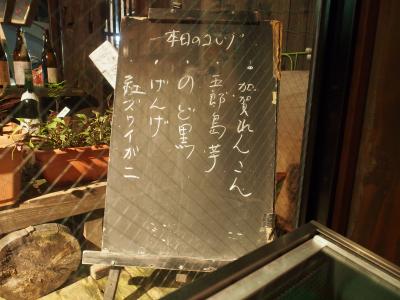 本日のコレゾ
・加賀れんこん
・五郎島芋
・のど黒
・げんげ
・紅ズワイガニ